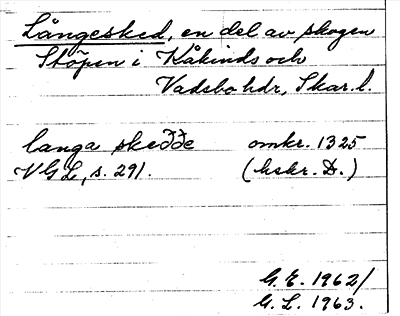 Långesked, en del av skogen
Stöpen i Kåkinds och
Vadsbo hdr, Skar. l.
langa skeððe omkr. 1325
VGL, s. 291. (hskr. D.)
G.E. 1962/
G.L. 1963.